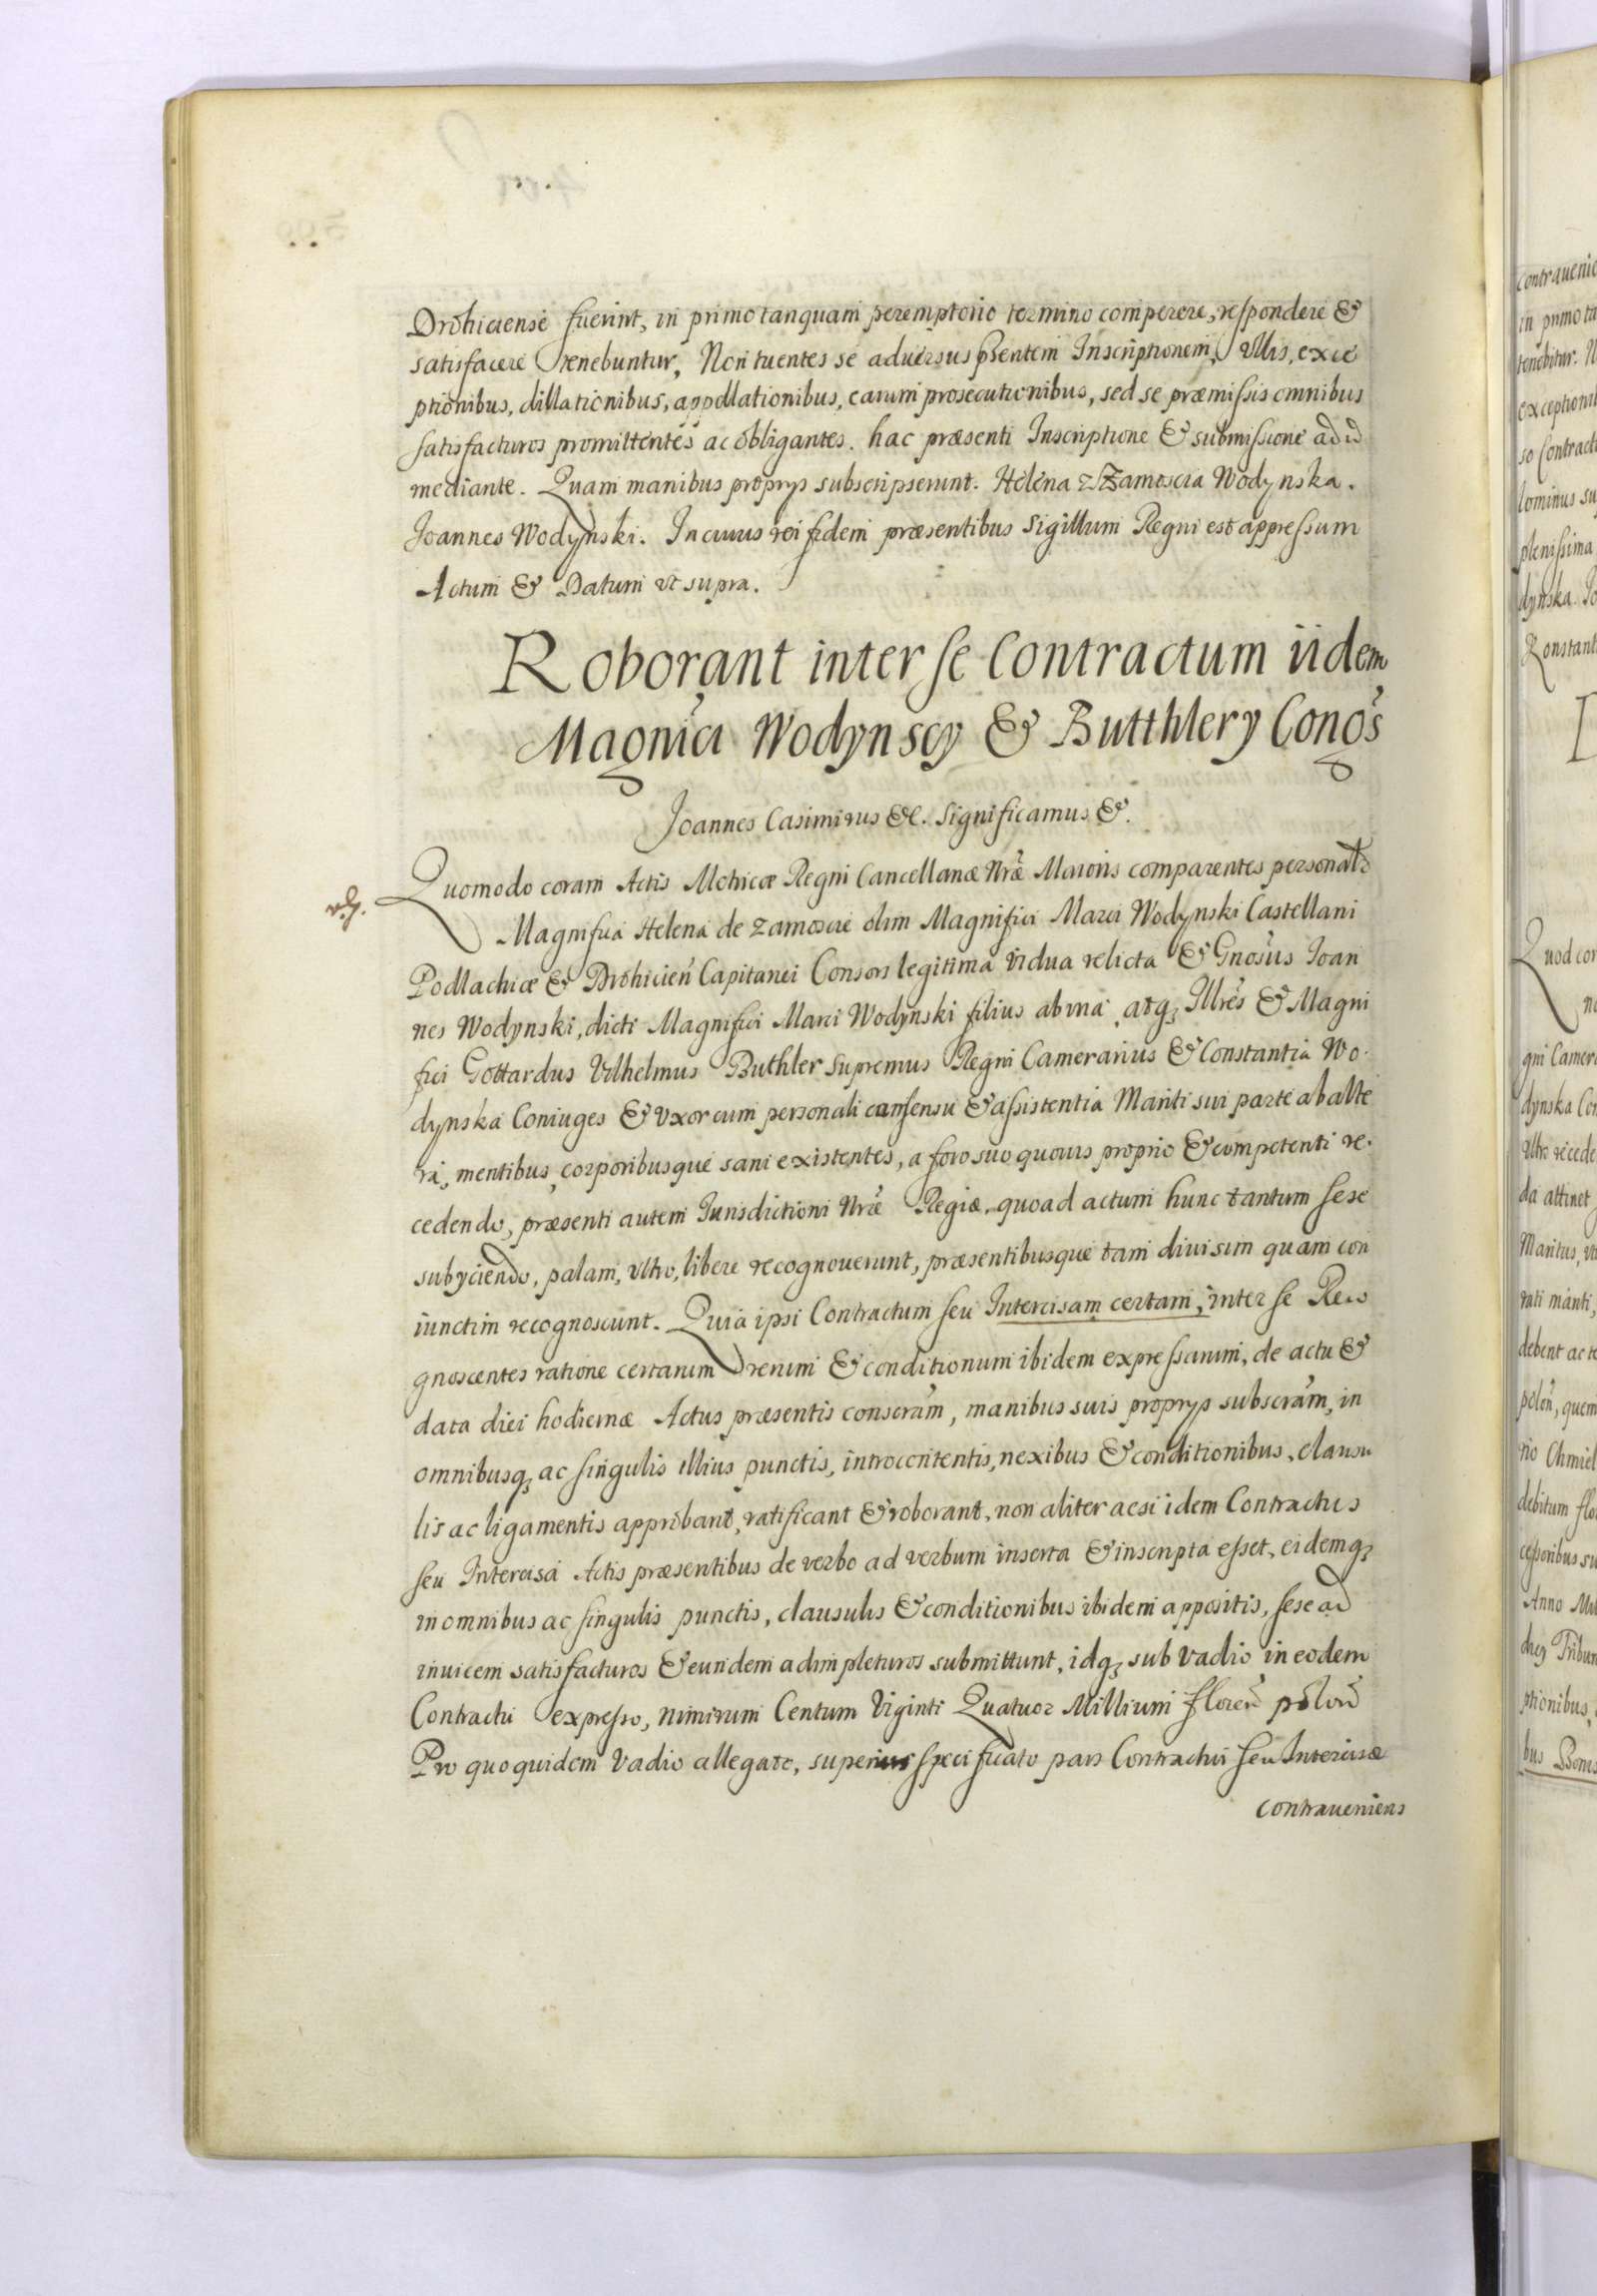 Drohiciense fuerint, in primo tanquam peremptorio termino comperere, respondere &
satisfacere tenebuntur, Non tuentes se aduersus pñtem Inscriptionem, vllis, exce
ptionibus, dillationibus, appellationibus, earum prosecutionibus, sed se præmissis omnibus
satisfacturos promittentes ac obligantes. hac præsenti Inscriptione & submissione ad id
mediante. Quam manibus proprys subscripserunt. Helena z Zamoscia Wodynska.
Joannes Wodynski. In cuius rei fidem præsentibus Sigillum Regni est appressum
Actum & Datum vt supra.
Roborant inter se Contractum iidem
Magnici Wodynscy & Butthlery Congs
Joannes Casimirus &c. Significamus &.
Quomodo coram Actis Metricæ Regni Cancellariæ Nræ Maioris comparentes personalr
Magnifica Helena de Zamoscie olim Magnifici Marci Wodynski Castellani
Podlachiæ & Drohicien Capitanei Consors legitima vidua relicta & Gnosus Joan
nes Wodynski, dicti Magnifici Marci Wodynski filius ab vna atq; Illres & Magni
fici Gottardus Vilhelmus Buthler Supremus Regni Camerarius & Constantia Wo
dynska Coniuges & vxor cum personali consensu & assistentia Mariti sui parte ab alte
ra, mentibus, corporibusque sani existentes, a foro suo quouis proprio & competenti re
cedendo, præsenti autem Iurisdictioni Nræ Regiæ, quoad actum hunc tantum sese
subyciendo, palam, vltro, libere recognouerunt, præsentibusque tam diuisim quam con
iunctim recognoscunt. Quia ipsi Contractum seu Intercisam certam, inter se Reco
gnoscentes ratione certarum rerum & conditionum ibidem expressarum, de actu &
data diei hodiernæ Actus præsentis conscram, manibus suis proprys subscram, in
omnibusq; ac singulis illius punctis, introcontentis, nexibus & conditionibus, clausu
lis ac ligamentis approbant, ratificant & roborant, non aliter acsi idem Contractus
seu Intercisa Actis præsentibus de verbo ad verbum inserta & inscripta esset, eidemq;
in omnibus ac singulis punctis, clausulis & conditionibus ibidem appositis, sese ad
inuicem satisfacturos & eundem adimpleturos submittunt, idq; sub vadio in eodem
Contractu expresso, nimirum Centum Viginti Quatuor Millium floren polon
Pro quo quidem vadio allegato, superius specificato pars Contractui seu Intercisæ
contraueniens